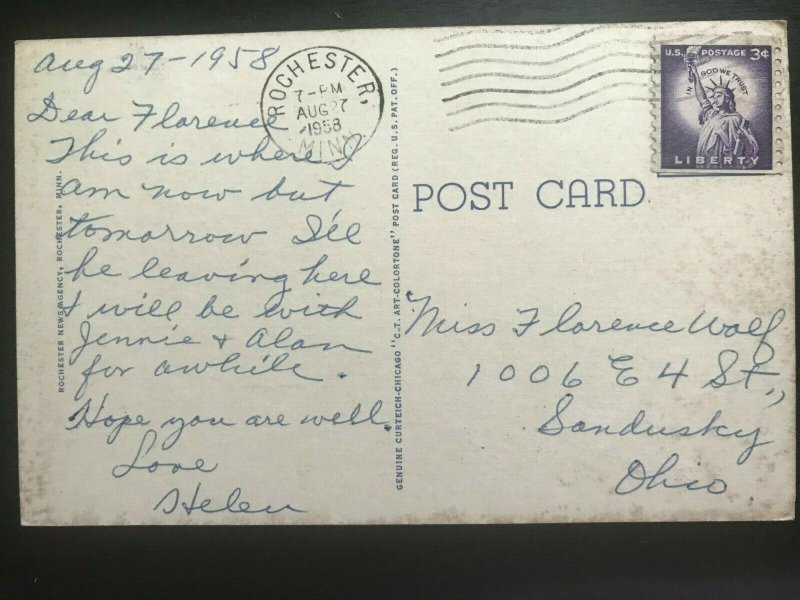 Aug 27-1958
Dear Florence
This is where I
am now but
tomorrow I'll
be leaving here
& will be with
Jennie & Alan
for awhile.
Hope you are well.
Love
Helen
ROCHESTER NEWS AGENCY, ROCHESTER, MINN.
ROCHESTER,
7-PM
AUG 27
1958
MINN.
GENUINE CURTEICH-CHICAGO "C.T. ART-COLORTONE" POST CARD (REG. U.S. PAT. OFF.)
U.S. POSTAGE 3¢
IN GOD WE TRUST
LIBERTY
POST CARD
Miss Florence Wolf
1006 E 4 St.,
Sandusky
Ohio